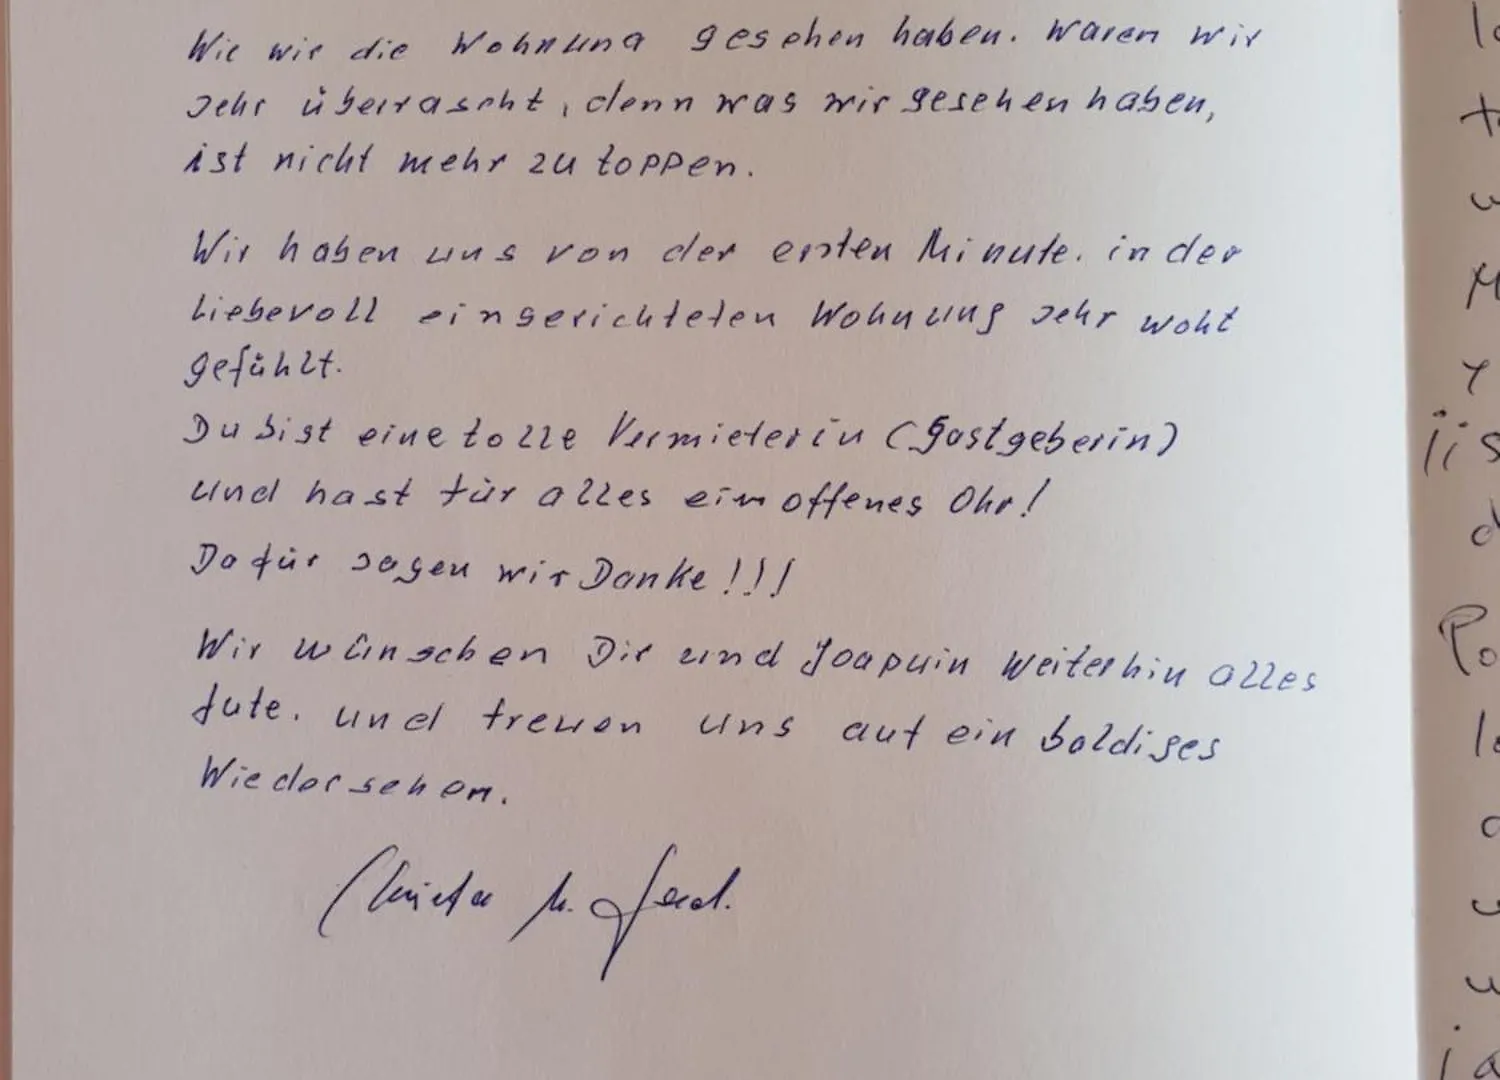 Wie wir die Wohnung gesehen haben. Waren wir
sehr überrascht, denn was wir gesehen haben,
ist nicht mehr zu toppen.
Wir haben uns von der ersten Minute. in der
liebevoll eingerichteten Wohnung sehr wohl
gefühlt.
Du bist eine tolle Vermieterin (Gastgeberin)
und hast für alles ein offenes Ohr!
Dafür sagen wir Danke!!!
Wir wünschen Dir und Joaquin weiterhin alles
Gute. und freuen uns auf ein baldiges
Wiedersehen.
Christa u.